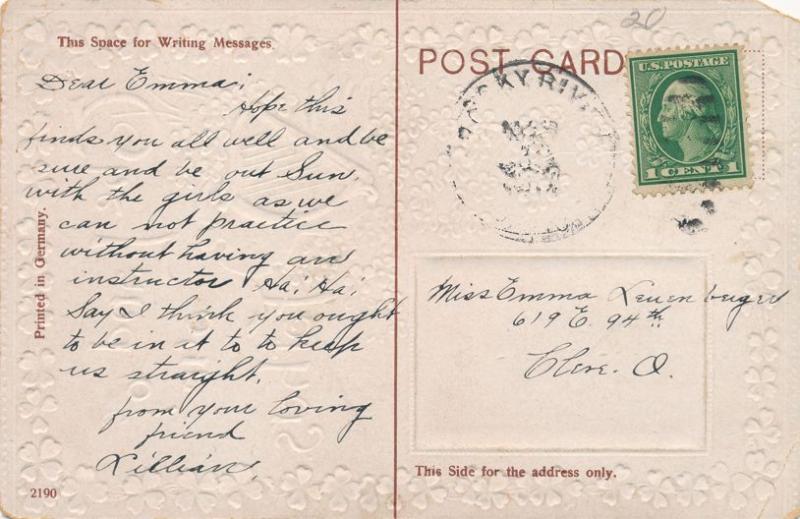 20
This Space for Writing Messages
POST CARD
Dear Emma;
Hope this
finds you all well and be
sure and be out Sun.
with the girls as we
can not practice
without having an
instructor Ha! Ha!
Say I think you ought
to be in it to to keep
us straight.
from your loving
friend
Lillian.
Printed in Germany.
2190
ROCKY RIVER
U.S. POSTAGE
1 CENT 1
Miss Emma Leuenberger
619 E. 94th
Cleve. O.
This Side for the address only.